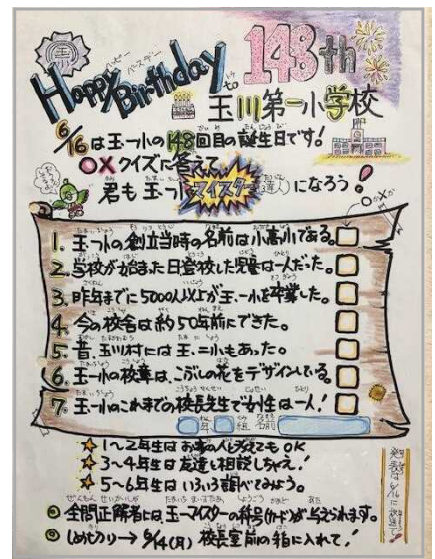 Happy Birthday to 148th
玉川第一小学校
6/16は玉一小の148回目の誕生日です!
○×クイズに答えて
君も玉一小マイスター(達人)になろう!
1. 玉一小の創立当時の名前は小高小である。
2. 学校が始まった日登校した児童は一人だった。
3. 昨年までに5000人以上が玉一小を卒業した。
4. 今の校舎は約50年前にできた。
5. 昔、玉川村には玉二小もあった。
6. 玉一小の校章は、こぶしの花をデザインしている。
7. 玉一小のこれまでの校長先生で女性は一人!
年 組 名前
☆ 1~2年生はお家の人と考えてもOK
☆ 3~4年生は友達と相談しちゃえ!
☆ 5~6年生はいろいろ調べてみよう。
◎ 全問正解者には、玉一マイスターの称号(カード)が与えられます。
◎ しめきり→6/14(月) 校長室前の箱に入れて!